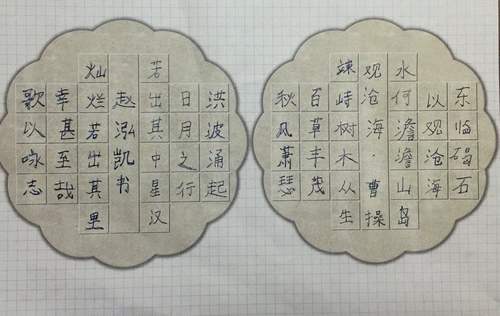 东临碣石
以观沧海
水何澹澹山岛
观沧海·曹操
竦峙树木从生
百草丰茂
秋风萧瑟
洪波涌起
日月之行
若出其中星汉
赵泓凯书
灿烂若出其里
幸甚至哉
歌以咏志